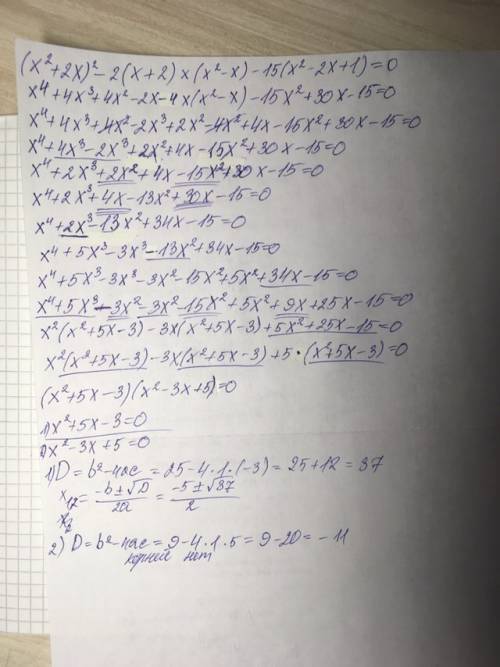 (x²+2x)²-2(x+2)×(x²-x)-15(x²-2x+1)=0
x⁴+4x³+4x²-2x-4×(x²-x)-15x²+30x-15=0
x⁴+4x³+4x²-2x³+2x²-4x²+4x-15x²+30x-15=0
x⁴+4x³-2x³+2x²+4x-15x²+30x-15=0
x⁴+2x³+2x²+4x-15x²+30x-15=0
x⁴+2x³+4x-13x²+30x-15=0
x⁴+2x³-13x²+34x-15=0
x⁴+5x³-3x³-13x²+34x-15=0
x⁴+5x³-3x³-3x²-15x²+5x²+34x-15=0
x⁴+5x³-3x²-3x²-15x²+5x²+9x+25x-15=0
x²(x²+5x-3)-3x(x²+5x-3)+5x²+25x-15=0
x²(x²+5x-3)-3x(x²+5x-3)+5·(x²+5x-3)=0
(x²+5x-3)(x²-3x+5)=0
1) x²+5x-3=0
2) x²-3x+5=0
1) D=b²-4ac=25-4.1.(-3)=25+12=37
x₁,₂=-b±√D/2a=-5±√37/2
2) D=b²-4ac=9-4.1.5=9-20=-11
корней нет